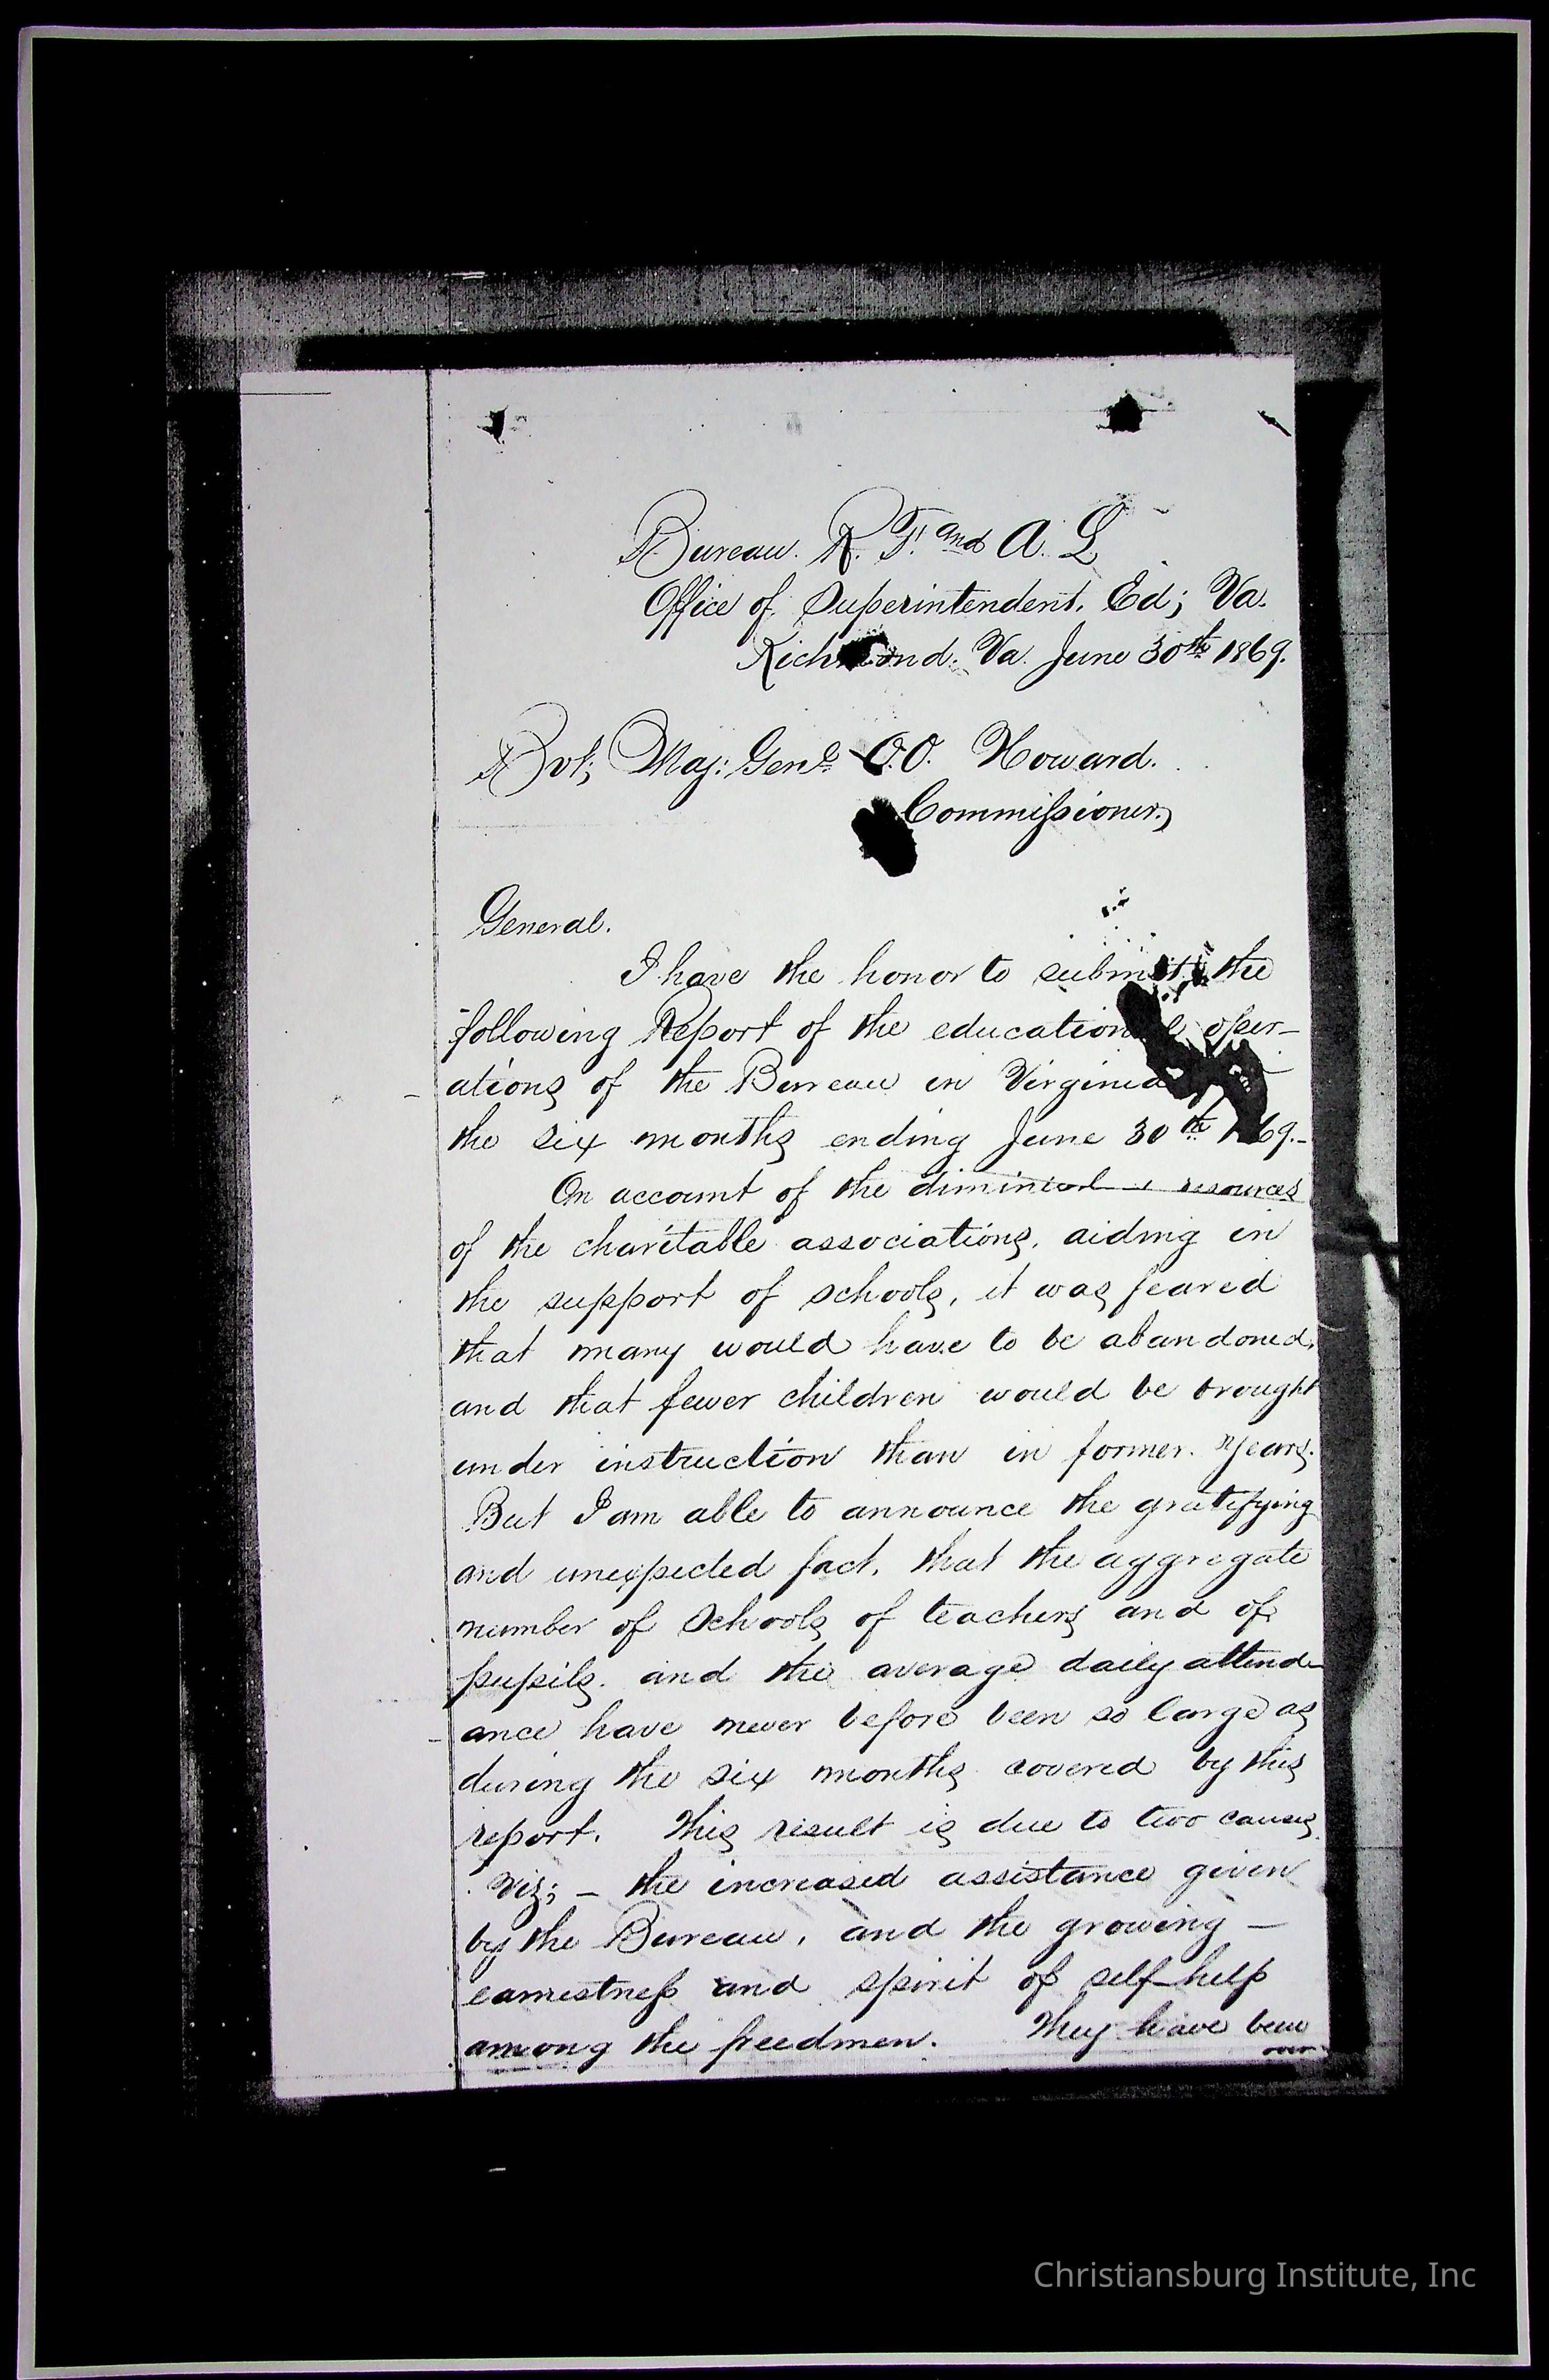 Bureau. R. F. and A. L
Office of Superintendent. Ed; Va.
Richmond. Va. June 30th 1869.
Bvt; Maj: Genl. O.O. Howard.
Commissioner,
General.
I have the honor to submit the
following Report of the educational oper-
ations of the Bureau in Virginia
the six months ending June 30th 1869.-
On account of the resources
of the charitable associations, aiding in
the support of schools, it was feared
that many would have to be abandoned,
and that fewer children would be brought
under instruction than in former years.
But I am able to announce the gratifying
and unexpected fact, that the aggregate
number of Schools of teachers and of
pupils. and the average daily attend-
ance have never before been so large as
during the six months covered by this
report. This result is due to two causes
Viz; - the increased assistance given
by the Bureau, and the growing -
earnestness and spirit of self-help
among the freedmen. They have been
over
Christiansburg Institute, Inc